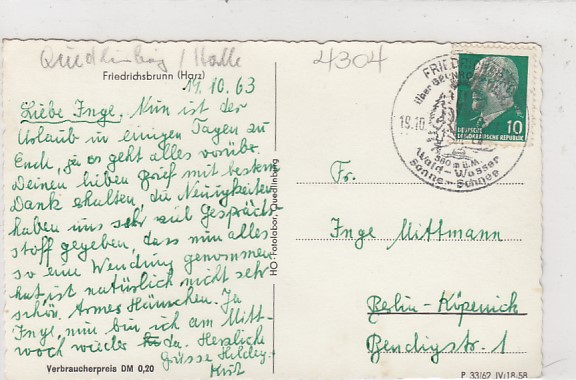 Quedlinburg / Halle
4304
Friedrichsbrunn (Harz)
19.10.63
Liebe Inge. Nun ist der
Urlaub in einigen Tagen zu
Ende, ja es geht alles vorüber.
Deinen lieben Brief mit bestem
Dank erhalten, die Neuigkeiten
haben uns sehr viel Gesprächs
stoff gegeben, dass nun alles
so eine Wendung genommen
hat ist natürlich nicht sehr
schön. Armes Hänschen. Ja
Inge, nun bin ich am Mitt-
woch wieder da. Herzliche
Grüsse Hildeg.
Verbraucherpreis DM 0,20
HO-Fotolabor, Quedlinburg
über
19.10
580 m ü.M.
Wald - Wasser
Sonne - Schnee
10
DEUTSCHE
DEMOKRATISCHE REPUBLIK
Fr.
Inge Mittmann
Berlin-Köpenick
Bendigstr. 1
P 33/62 IV/18-58